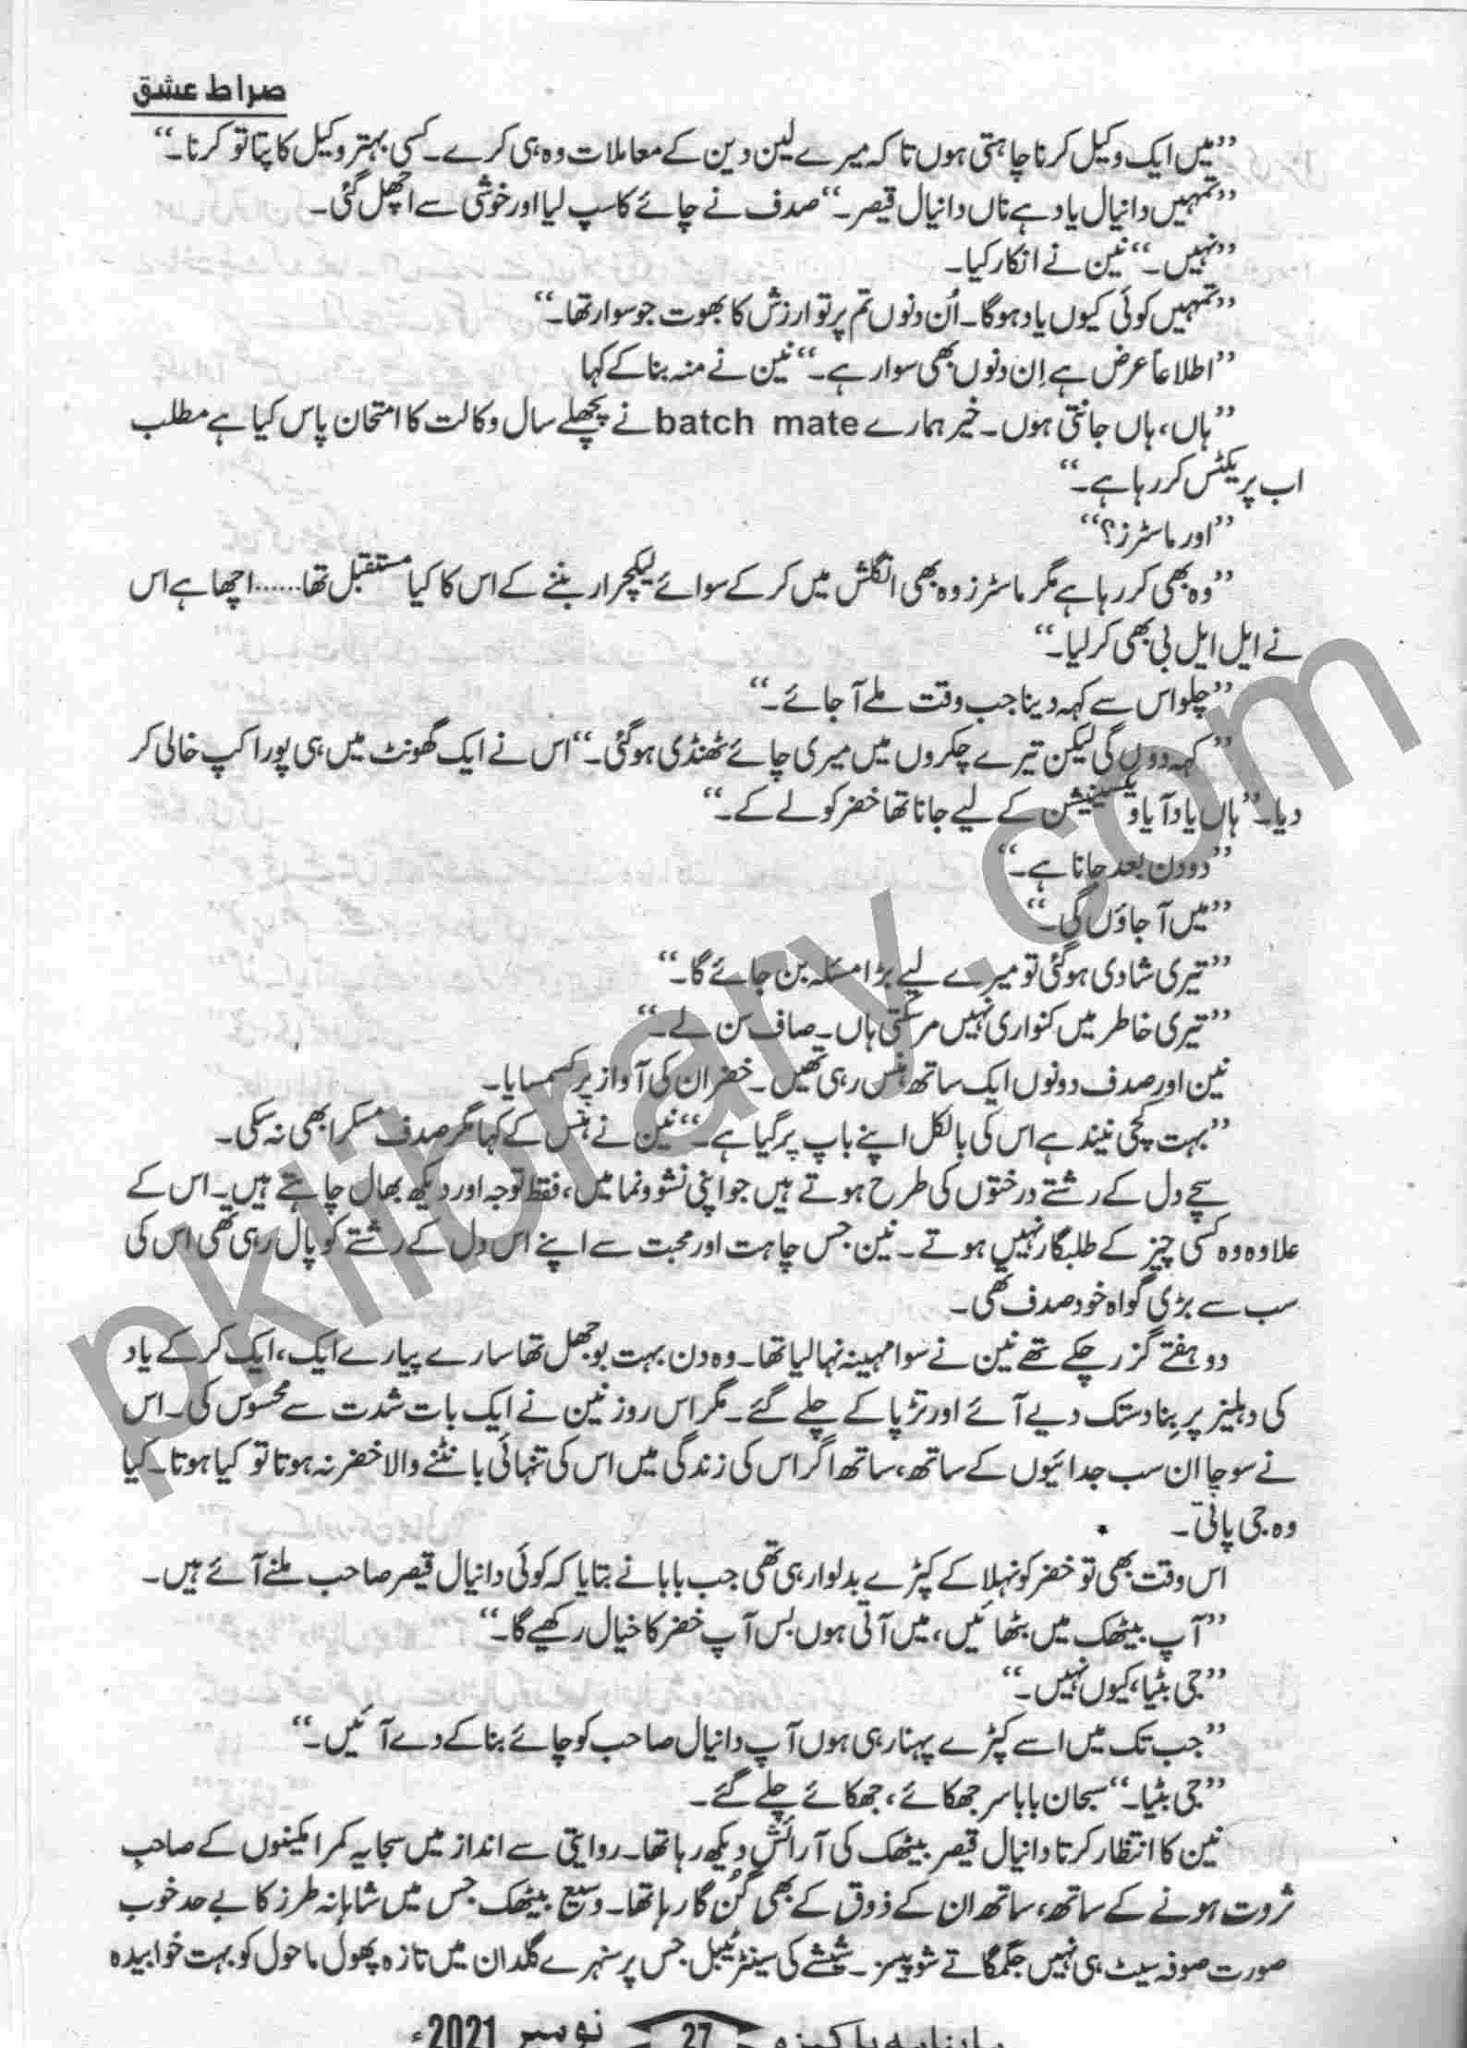 صراط عشق
”میں ایک وکیل کرنا چاہتی ہوں تاکہ میرے لین دین کے معاملات وہ ہی کرے۔ کسی بہتر وکیل کا پتا تو کرنا۔“
”تمہیں دانیال یاد ہے ناں دانیال قیصر۔“ صدف نے چائے کا سپ لیا اور خوشی سے اچھل گئی۔
”نہیں۔“ نین نے انکار کیا۔
”تمہیں کوئی کیوں یاد ہو گا۔ اُن دنوں تم پر تو ارزش کا بھوت جو سوار تھا۔“
”اطلاعاً عرض ہے اِن دنوں بھی سوار ہے۔“ نین نے منہ بنا کے کہا
”ہاں، ہاں جانتی ہوں۔ خیر ہمارے batch mate نے پچھلے سال وکالت کا امتحان پاس کیا ہے مطلب
اب پریکٹس کر رہا ہے۔“
”اور ماسٹرز؟“
”وہ بھی کر رہا ہے مگر ماسٹرز وہ بھی انگلش میں کر کے سوائے لیکچرار بننے کے اس کا کیا مستقبل تھا......اچھا ہے اس
نے ایل ایل بی بھی کر لیا۔“
”چلو اس سے کہہ دینا جب وقت ملے آ جائے۔“
”کہہ دوں گی لیکن تیرے چکروں میں میری چائے ٹھنڈی ہو گئی۔“ اس نے ایک گھونٹ میں ہی پورا کپ خالی کر
دیا۔ ”ہاں یاد آیا ویکسینیشن کے لیے جانا تھا خضر کو لے کے۔“
”دو دن بعد جانا ہے۔“
”میں آ جاؤں گی۔“
”تیری شادی ہو گئی تو میرے لیے بڑا مسئلہ بن جائے گا۔“
”تیری خاطر میں کنواری نہیں مر سکتی ہاں۔ صاف سن لے۔“
نین اور صدف دونوں ایک ساتھ ہنس رہی تھیں۔ خضر ان کی آواز پر کسمسایا۔
”بہت کچی نیند ہے اس کی بالکل اپنے باپ پر گیا ہے۔“ نین نے ہنس کے کہا مگر صدف مسکرا بھی نہ سکی۔
سچے دل کے رشتے درختوں کی طرح ہوتے ہیں جو اپنی نشوونما میں، فقط توجہ اور دیکھ بھال چاہتے ہیں۔ اس کے
علاوہ وہ کسی چیز کے طلبگار نہیں ہوتے۔ نین جس چاہت اور محبت سے اپنے اس دل کے رشتے کو پال رہی تھی اس کی
سب سے بڑی گواہ خود صدف تھی۔
دو ہفتے گزر چکے تھے نین نے سوا مہینہ نہا لیا تھا۔ وہ دن بہت بوجھل تھا سارے پیارے ایک، ایک کر کے یاد
کی دہلیز پر بِنا دستک دیے آئے اور تڑپا کے چلے گئے۔ مگر اس روز نین نے ایک بات شدت سے محسوس کی۔ اس
نے سوچا ان سب جدائیوں کے ساتھ، ساتھ اگر اس کی زندگی میں اس کی تنہائی بانٹنے والا خضر نہ ہوتا تو کیا ہوتا۔ کیا
وہ جی پاتی۔
اس وقت بھی تو خضر کو نہلا کے کپڑے بدلوا رہی تھی جب بابا نے بتایا کہ کوئی دانیال قیصر صاحب ملنے آئے ہیں۔
”آپ بیٹھک میں بٹھائیں، میں آتی ہوں بس آپ خضر کا خیال رکھیے گا۔“
”جی بٹیا، کیوں نہیں۔“
”جب تک میں اسے کپڑے پہنا رہی ہوں آپ دانیال صاحب کو چائے بنا کے دے آئیں۔“
”جی بٹیا۔“ سبحان بابا سر جھکائے، جھکائے چلے گئے۔
نین کا انتظار کرتا دانیال قیصر بیٹھک کی آرائش دیکھ رہا تھا۔ روایتی سے انداز میں سجا یہ کمرا مکینوں کے صاحبِ
ثروت ہونے کے ساتھ، ساتھ ان کے ذوق کے بھی گُن گا رہا تھا۔ وسیع بیٹھک جس میں شاہانہ طرز کا بے حد خوب
صورت صوفہ سیٹ ہی نہیں جگمگاتے شوپیسز۔ شیشے کی سینٹر ٹیبل جس پر سنہرے گلدان میں تازہ پھول ماحول کو بہت خوابیدہ
ماہنامہ پاکیزہ 27 نومبر 2021ء
pklibrary.com